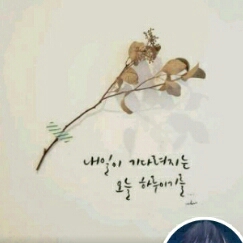 내일이 기다려지는
오늘 하루이기를